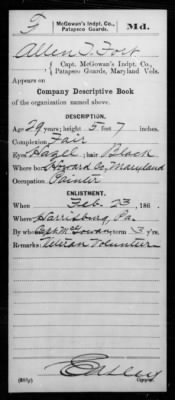 F | McGowan's Indpt. Co., Patapsco Guards. | Md.
Allen T. Fort
Capt. McGowan's Indpt. Co.,
Patapsco Guards, Maryland Vols.
Appears on
Company Descriptive Book
of the organization named above.
DESCRIPTION.
Age 29 years; height 5 feet 7 inches.
Complexion Fair
Eyes Hazel; hair Black
Where born Howard Co, Maryland
Occupation Painter
ENLISTMENT.
When Feb. 23, 186 .
Where Harrisburg, Pa.
By whom Capt McGowan; term 3 y'rs.
Remarks: Veteran Volunteer
(383g)
Copyist.